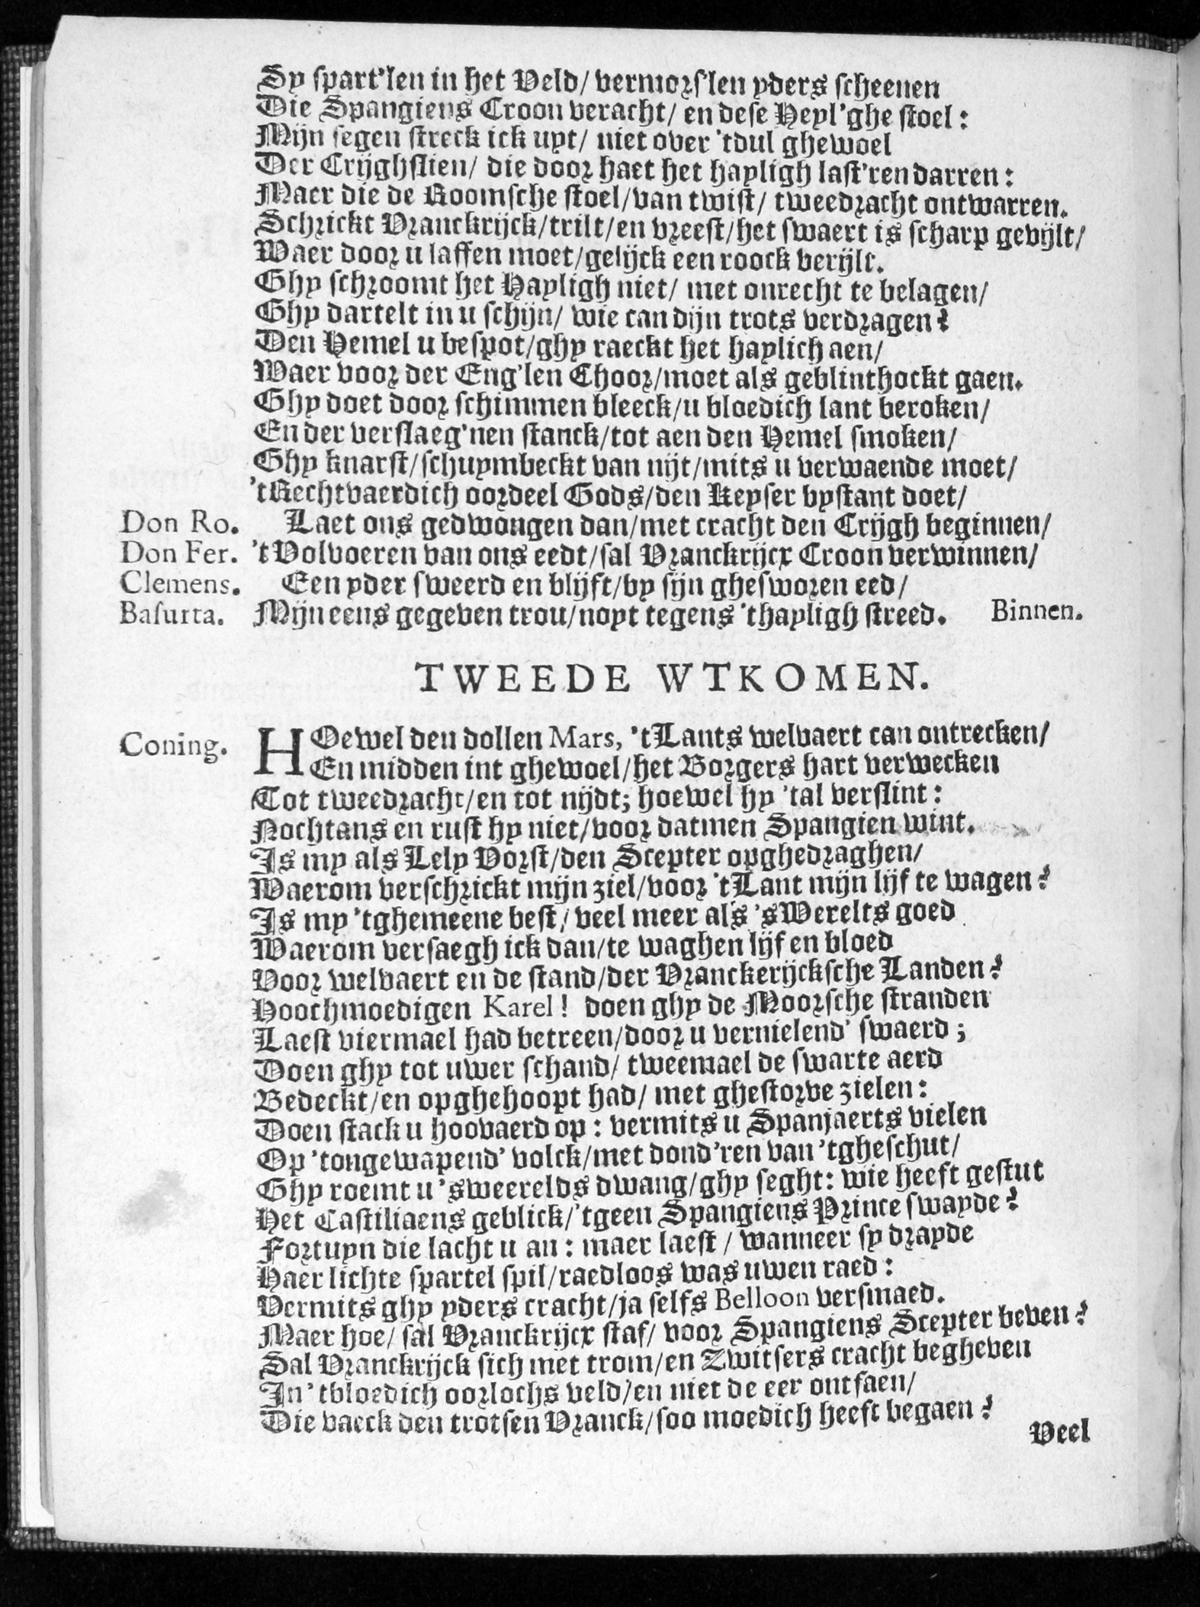 Sy spart'len in het Veld/ vermors'len yders scheenen
Die Spangiens Croon veracht/ en dese Heyl'ghe stoel:
Mijn segen streck ick uyt/ niet over 'tdul ghewoel
Der Crijghslien/ die door haet het hayligh last'ren darren:
Maer die de Roomsche stoel/van twist/ tweedracht ontwarren.
Schrickt Vranckrijck/trilt/en vreest/het swaert is scharp gevijlt/
Waer door u laffen moet/gelijck een roock verijlt.
Ghy schroomt het Hayligh niet/ met onrecht te belagen/
Ghy dartelt in u schijn/ wie can dijn trots verdragen?
Den Hemel u bespot/ghy raeckt het haylich aen/
Waer voor der Eng'len Choor/moet als geblinthockt gaen.
Ghy doet door schimmen bleeck/u bloedich lant beroken/
En der verslaeg'nen stanck/tot aen den Hemel smoken/
Ghy knarst/schuymbeckt van nijt/mits u verwaende moet/
'tRechtvaerdich oordeel Gods/den Keyser bystant doet/
Don Ro. Laet ons gedwongen dan/met cracht den Crijgh beginnen/
Don Fer. 't Volvoeren van ons eedt/sal Vranckrijcx Croon verwinnen/
Clemens. Een yder sweerd en blijft/by sijn ghesworen eed/
Basurta. Mijn eens gegeven trou/noyt tegens 'thayligh streed. Binnen.
TWEEDE WTKOMEN.
Coning. HOewel den dollen Mars, 't Lants welvaert can ontrecken/
En midden int ghewoel/het Borgers hart verwecken
Tot tweedracht/en tot nijdt; hoewel hy 'tal verslint:
Nochtans en rust hy niet/voor datmen Spangien wint.
Is my als Lely Vorst/den Scepter opghedraghen/
Waerom verschrickt mijn ziel/voor 't Lant mijn lijf te wagen?
Is my 'tghemeene best/ veel meer als 'sWerelts goed
Waerom versaegh ick dan/te waghen lijf en bloed
Voor welvaert en de stand/der Vranckerijcksche Landen?
Hoochmoedigen Karel! doen ghy de Moorsche stranden
Laest viermael had betreen/door u vernielend' swaerd;
Doen ghy tot uwer schand/ tweemael de swarte aerd
Bedeckt/en opghehoopt had/ met ghestorve zielen:
Doen stack u hoovaerd op: vermits u Spanjaerts vielen
Op 'tongewapend' volck/met dond'ren van 'tgheschut/
Ghy roemt u 'sweerelds dwang/ghy seght: wie heeft gestut
Het Castiliaens geblick/'tgeen Spangiens Prince swayde?
Fortuyn die lacht u an: maer laest / wanneer sy drayde
Haer lichte spartel spil/raedloos was uwen raed:
Vermits ghy yders cracht/ja selfs Belloon versmaed.
Maer hoe/ sal Vranckrijcx staf/ voor Spangiens Scepter beven?
Sal Vranckrijck sich met trom/en Zwitsers cracht begheven
In 't bloedich oorlochs veld/en niet de eer ontfaen/
Die vaeck den trotsen Vranck/soo moedich heeft begaen?
Veel